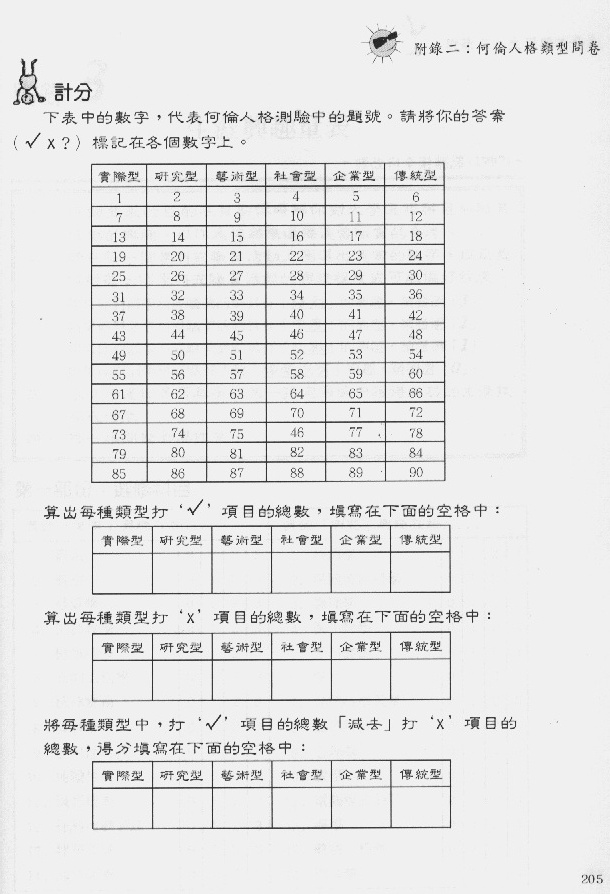 附錄二：何倫人格類型問卷
計分
下表中的數字，代表何倫人格測驗中的題號。請將你的答案
（✓ X ?）標記在各個數字上。
實際型 研究型 藝術型 社會型 企業型 傳統型
1 2 3 4 5 6
7 8 9 10 11 12
13 14 15 16 17 18
19 20 21 22 23 24
25 26 27 28 29 30
31 32 33 34 35 36
37 38 39 40 41 42
43 44 45 46 47 48
49 50 51 52 53 54
55 56 57 58 59 60
61 62 63 64 65 66
67 68 69 70 71 72
73 74 75 46 77 78
79 80 81 82 83 84
85 86 87 88 89 90
算出每種類型打‘✓’項目的總數，填寫在下面的空格中：
實際型 研究型 藝術型 社會型 企業型 傳統型
算出每種類型打‘X’項目的總數，填寫在下面的空格中：
實際型 研究型 藝術型 社會型 企業型 傳統型
將每種類型中，打‘✓’項目的總數「減去」打‘X’項目的
總數，得分填寫在下面的空格中：
實際型 研究型 藝術型 社會型 企業型 傳統型
205